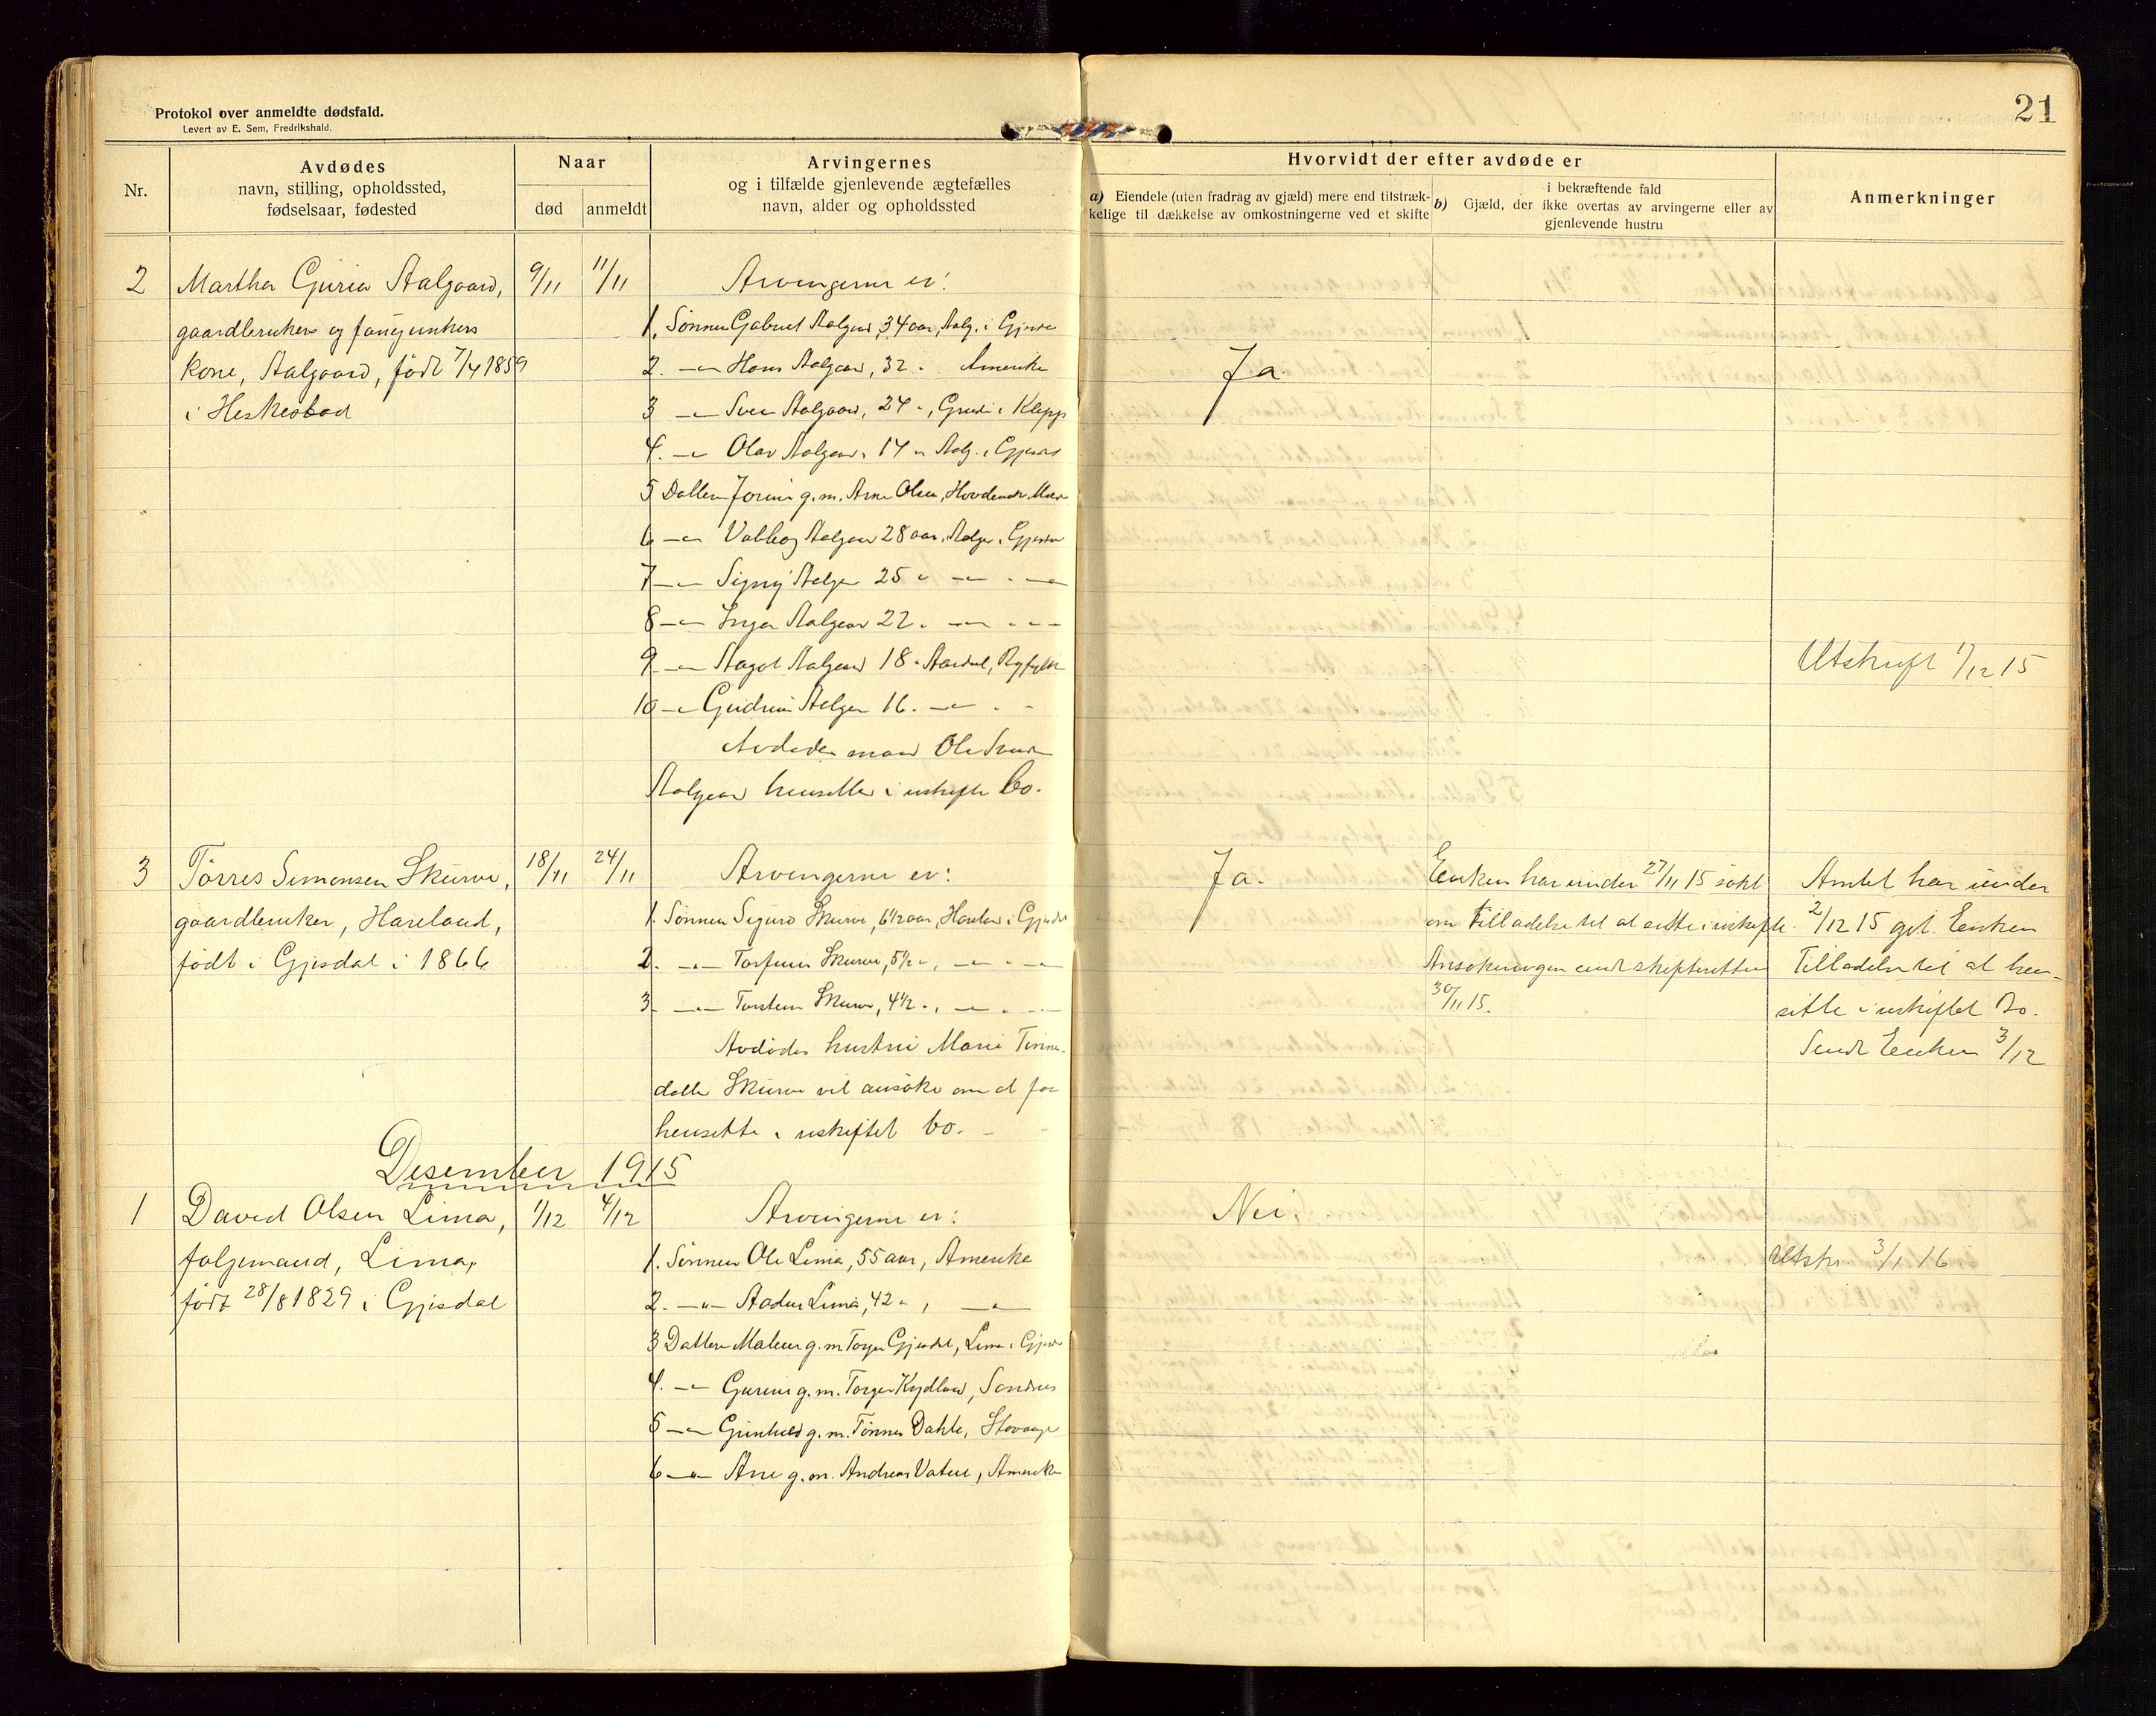 Protokol over anmeldte dødsfald.
Levert av E. Sem, Fredrikshald.
21
Nr.
Avdødes
navn, stilling, opholdssted,
fødselsaar, fødested
Naar
død
anmeldt
Arvingernes
og i tilfælde gjenlevende ægtefælles
navn, alder og opholdssted
Hvorvidt der efter avdøde er
a) Eiendele (uten fradrag av gjæld) mere end tilstræk-
kelige til dækkelse av omkostningerne ved et skifte
i bekræftende fald
b) Gjæld, der ikke overtas av arvingerne eller av
gjenlevende hustru
Anmerkninger
2
Martha Guria Aalgaard,
gaardbrukers og
kone, Aalgaard, født 7/4 1859
i Heskestad
9/11
11/11
Arvingerne er:
1. Sønnen Gabriel Aalgaard, 34 aar, Aalg. i Gjesdal
2. -"- Hans Aalgaard, 32 " Amerika
3 -"- Sven Aalgaard, 24 ", Grude i Klepp
4. -"- Olav Aalgaard, 14 " Aalg. i Gjesdal
5 Datteren Jorine g. m. Arne Olsen,
6 -"- Valborg Aalgaard 28 aar, Aalg. i Gjesdal
7 -"- Signy Aalgaard 25 " -"- " -"-
8 -"- Inga Aalgaard 22 " -"- " -"-
9 -"- Aagot Aalgaard 18 " Aardal, Ryfylke
10 -"- Gudrun Aalgaard 16 " -"- " -
Avdødes mand Ole Svends
Aalgaard hensitter i uskiftet bo.
Ja
Utskrift 1/12 15
3
Tørres Simonsen Skurve,
gaardbruker, Haveland,
født i Gjesdal i 1866
18/11
24/11
Arvingerne er:
1. Sønnen Sigurd Skurve, 6 1/2 aar, Haveland i Gjesdal
2. -"- Torfinn Skurve, 5 1/2 ", -"- " -"-
3 -"- Torstein Skurve, 4 1/2 ", -"- " -"-
Avdødes hustru Marie Tønnes-
datter Skurve vil ansøke om at faa
hensitte i uskiftet bo.
Ja.
Enken har under 27/11 15 søkt
om tilladelse til at sitte i uskifte.
Ansøkningen sendt skifteretten
30/11 15.
Amtet har under
2/12 15 git Enken
Tilladelse til at hen-
sitte i uskiftet Bo.
Sendt Enken 3/12
Desember 1915
1
David Olsen Lima,
følgemand, Lima,
født 28/8 1829 i Gjesdal
1/12
4/12
Arvingerne er:
1. Sønnen Ole Lima, 55 aar, Amerika
2. -"- Aadne Lima, 42 ", -"-
3 Datteren Malene g. m. Torger Gjesdal, Lima i Gjesdal
4. -"- Gurine g. m. Torger Kydland, Sandnes
5 -"- Gunhild g. m. Tønnes Dahle, Stavanger
6 -"- Ane g. m. Andreas Vatne, Amerika
Nei.
Utskr. 3/1 16